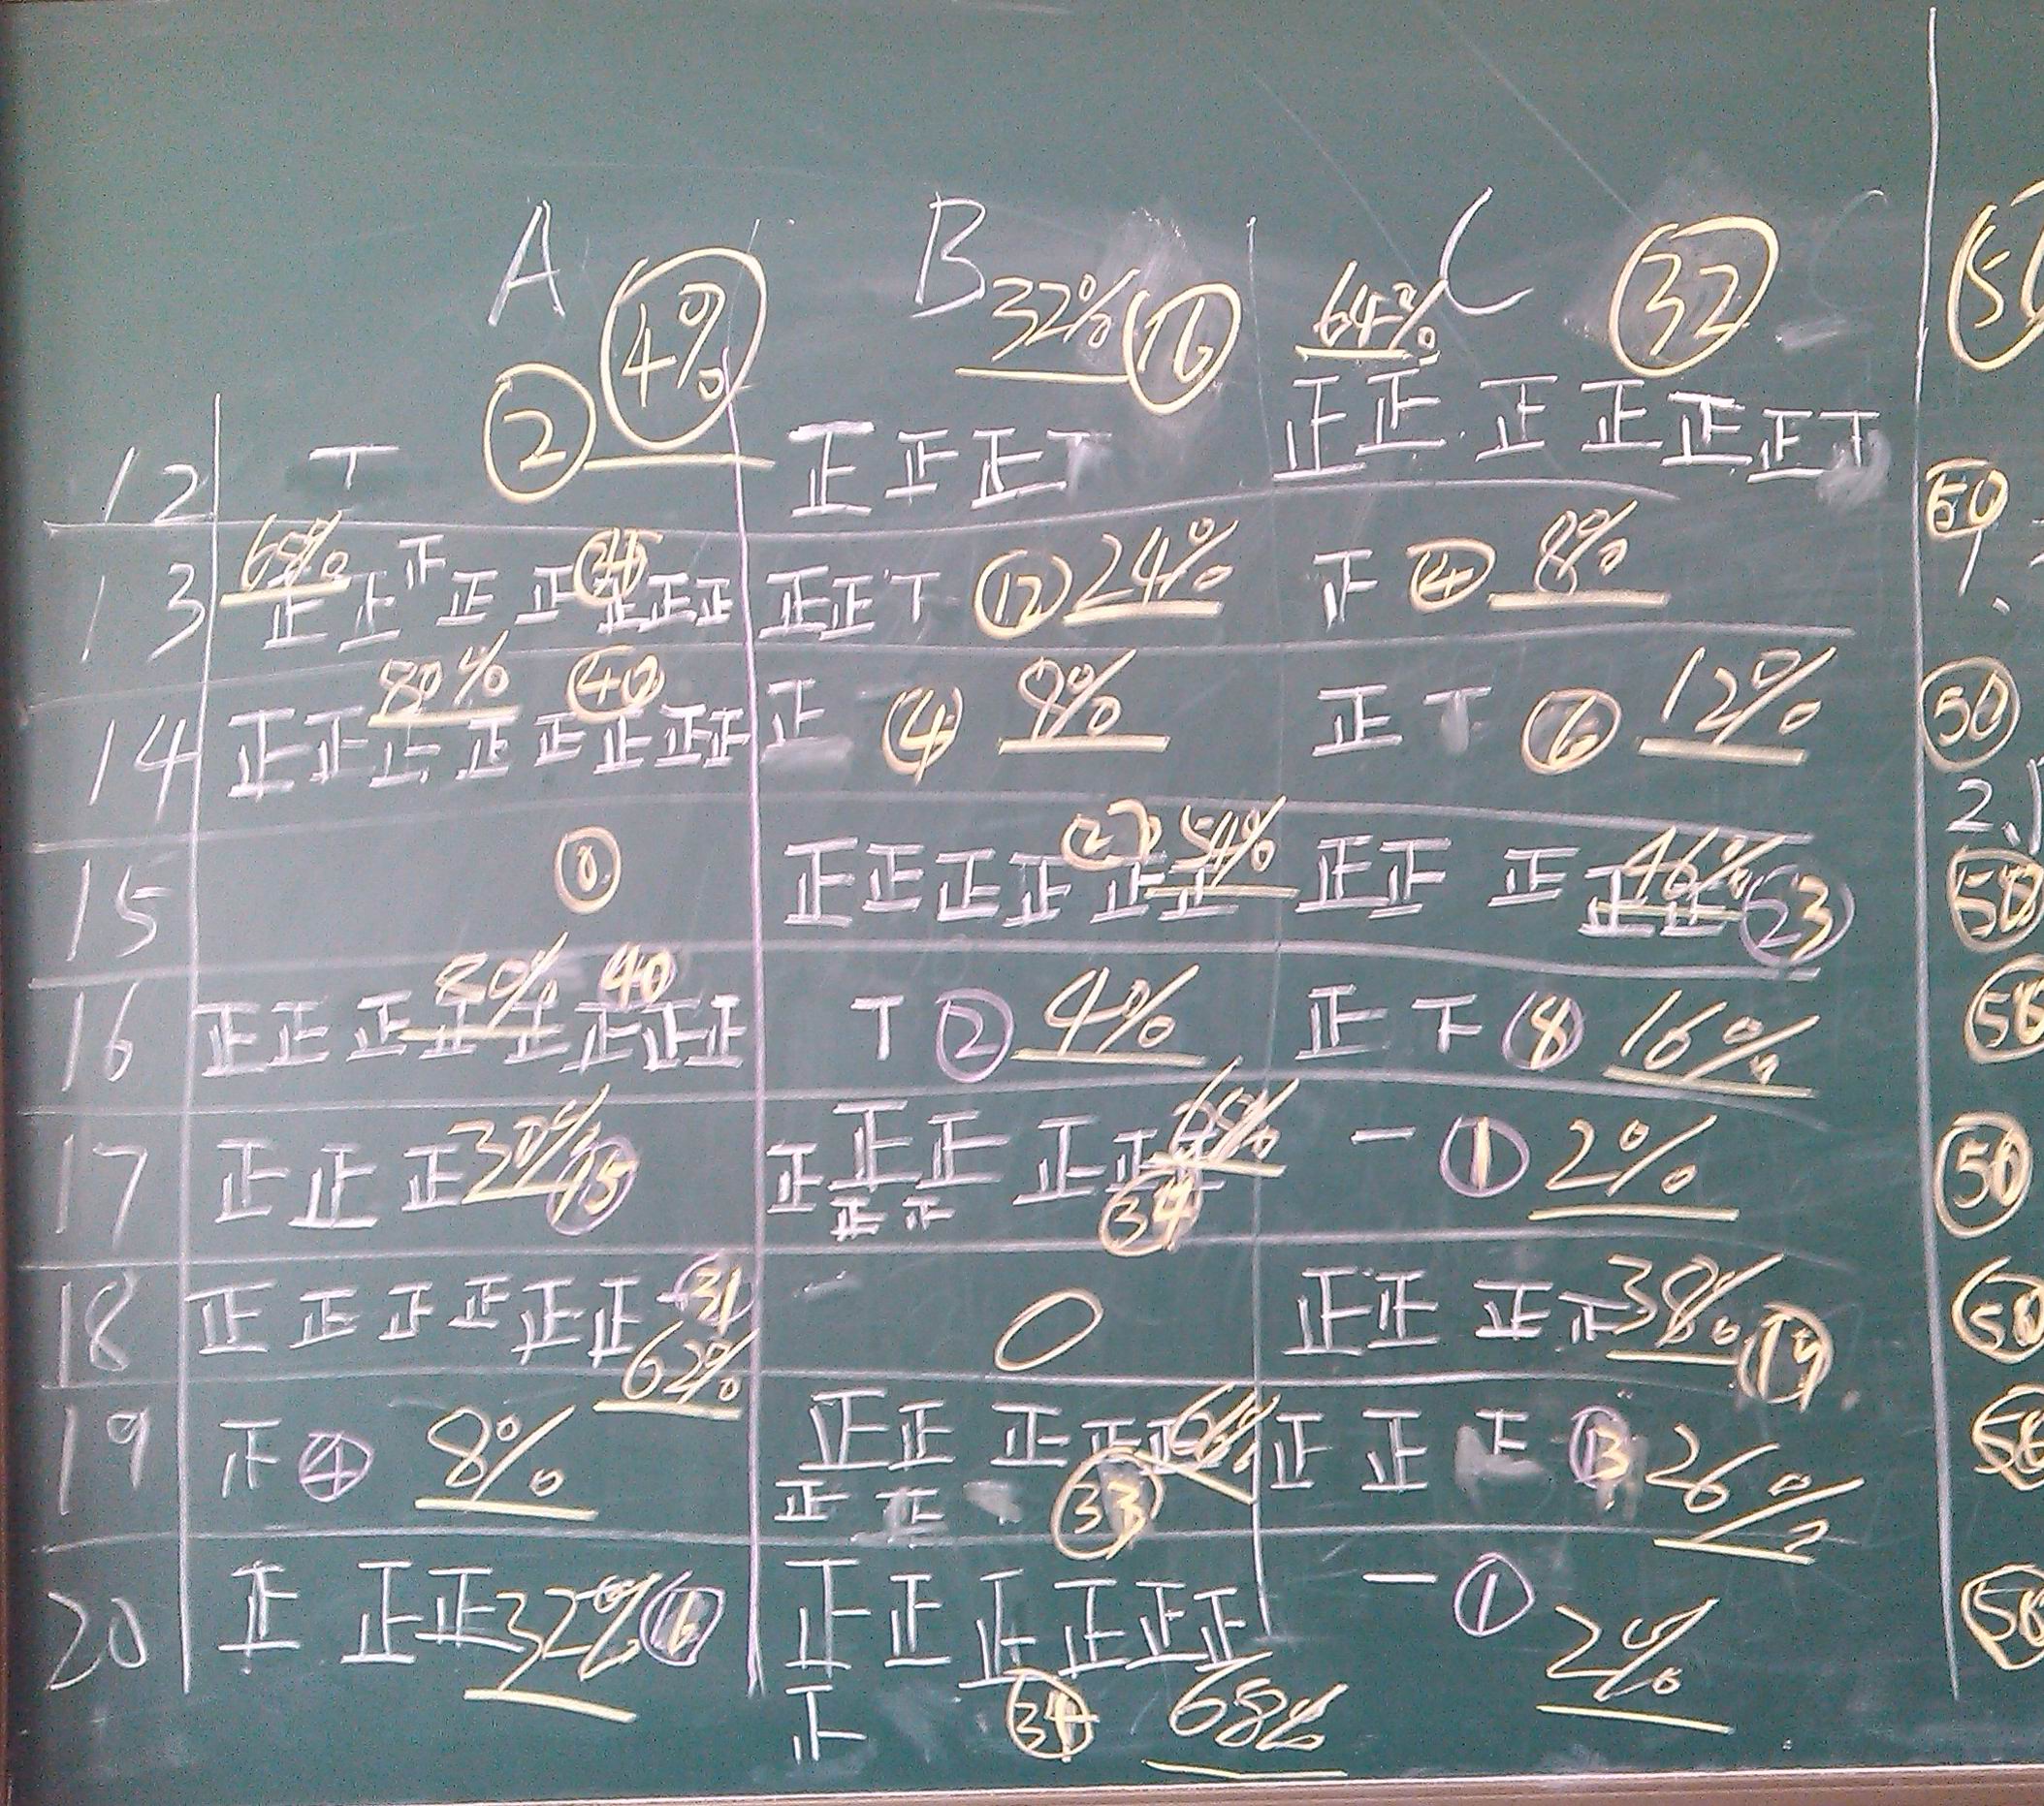 A 4% B 32% 16 64% C 32
12 丅 2 正正正丅 正正正正正正丅
13 68% 正正正正正正正 34 正正丅 12 24% 正 4 8% 50
14 80% 40 正正正正正正正正 正 4 8% 正丅 6 12% 50
15 0 正正正正正正 27 54% 正正正正正 46% 23 50
16 80% 40 正正正正正正正正 丅 2 4% 正下 8 16% 50
17 正正正 30% 15 正正正正正正正 68% 34 一 1 2% 50
18 正正正正正正一 31 62% 0 正正正正 38% 19 50
19 正 4 8% 正正正正正正正 66% 33 正正正 13 26% 50
20 正正正 32% 16 正正正正正正正 34 68% 一 1 2% 50